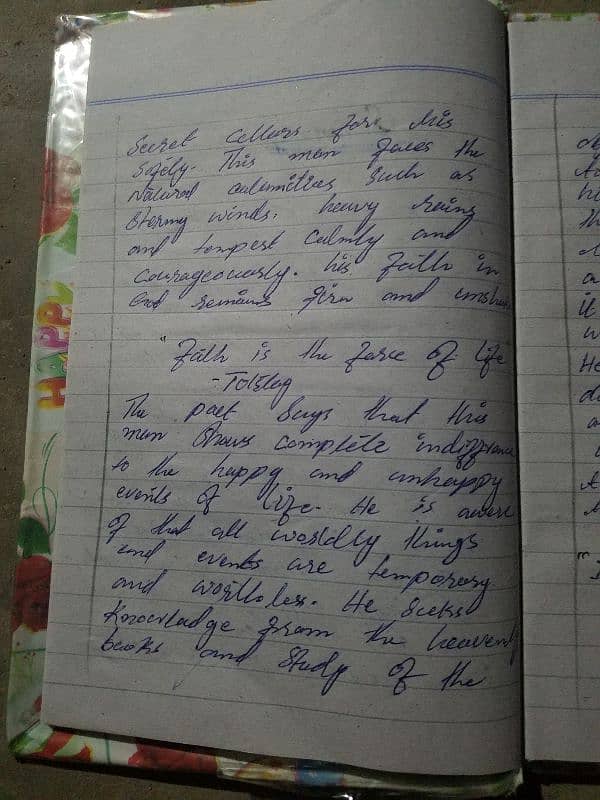 Secret Cellars for his
Safety. This man faces the
Natural calamities such as
Stormy winds, heavy rains
and tempest calmly and
courageously. his faith in
God remains firm and unshak
"Faith is the force of life
- Tolstoy
The poet Says that this
man Shows complete indiffrance
to the happy and unhappy
events of life. He is aware
of that all worldly things
and events are temporary
and worthless. He Seeks
Knowledge from the heavenly
books and study of the
HAPPY